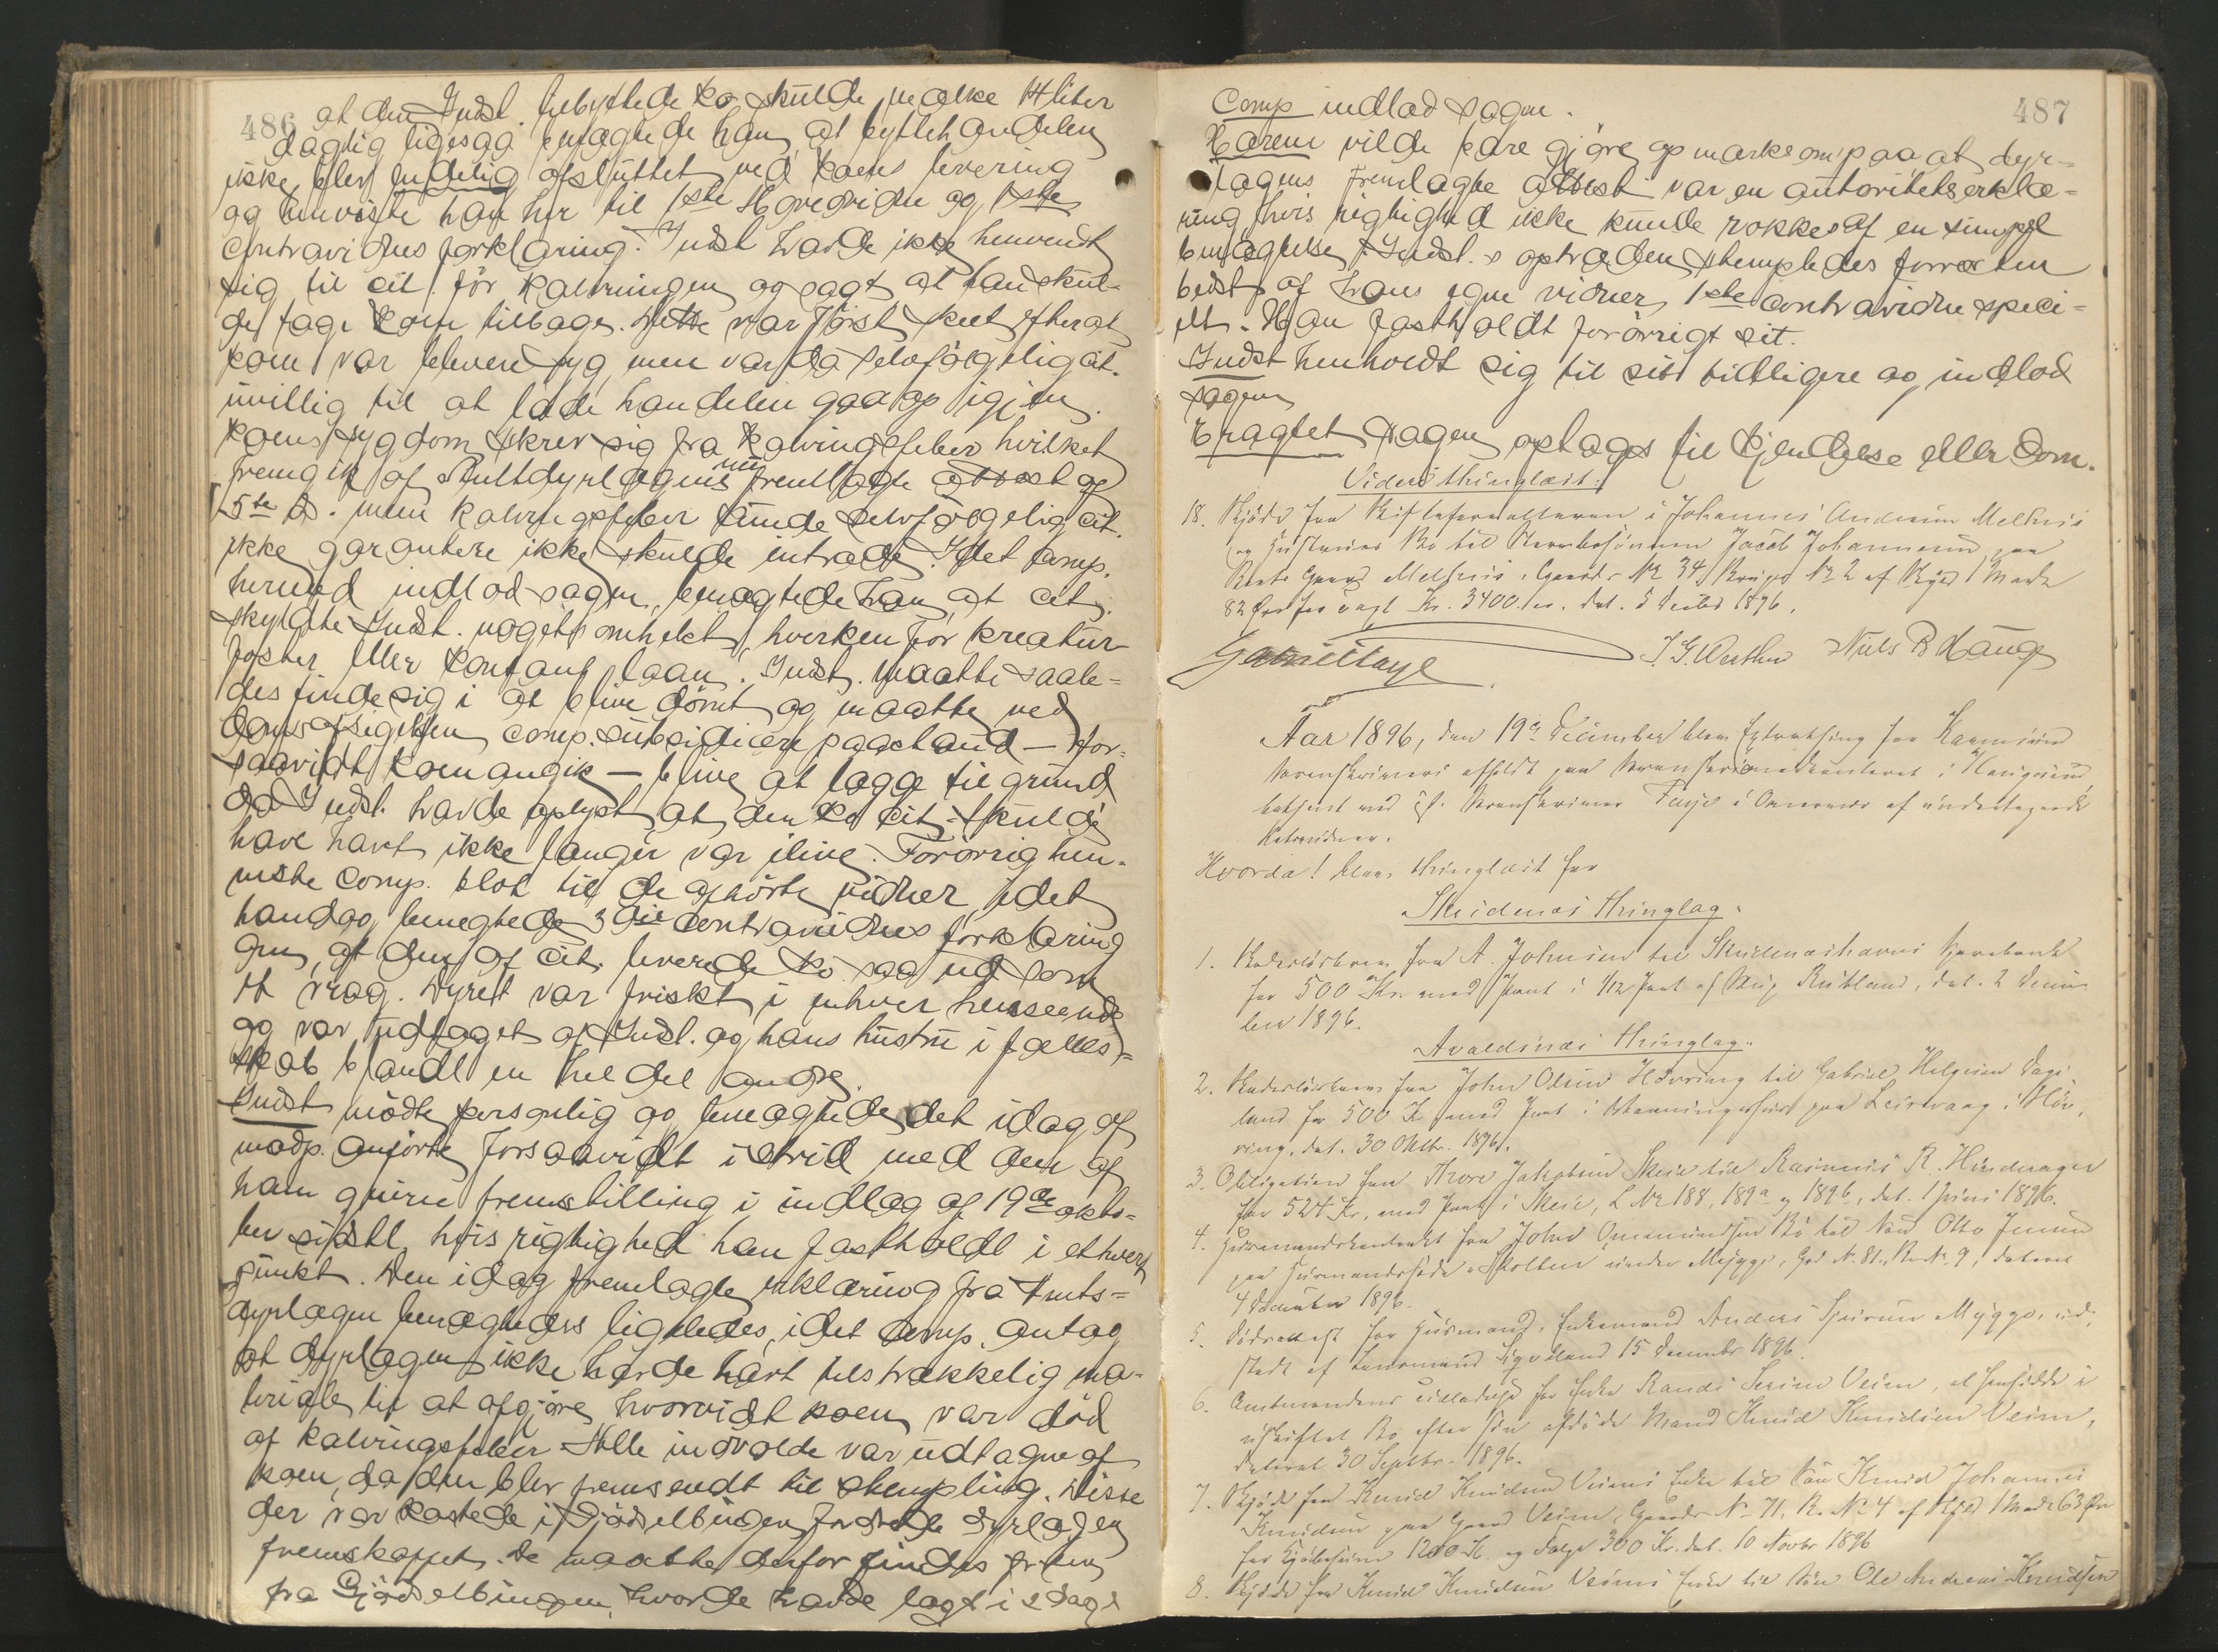 486
at den Indst. tilbyttede Ko skulde melke 14 liter
daglig ligesaa benægtede han, at byttehandelen
ikke blev endelig afsluttet ved Koens levering
og henviste han her til 1ste Hovedvidne og 1ste
contravidnes forklaring. Indst havde ikke henvendt
sig til cit. før Kalvningen og sagt at han skul-
de tage Koen tilbage. Dette var først skeet efterat
koen var bleven syg, men var da selvfølgelig cit.
uvillig til at lade handelen gaa op igjen.
Koens sygdom skrev sig fra Kalvingsfeber hvilket
fremgik af Amtsdyrlægens nu fremlagte attest af
15de ds. men Kalvingsfeber kunde selvfølgelig cit.
ikke garantere ikke skulde indtræde. Idet Comp.
hermed indlod sagen, benægtede han at cit.
skyldte Indst. nogetsomhelst, hverken for kreatur-
foster eller Kontant laan. Indst. maatte saale-
des finde sig i at blive dømt og maatte ved
domsafsigelsen comp. subsidiære paastand – for-
saavidt Koen angik – blive at lægge til grund
da Indst. havde oplyst at den Ko cit. skulde
have havt ikke længer var ilive. Forøvrig hen-
viste Comp. blot til de afhørte vidner, idet
han dog benegtede 3die contravidnes forklaring
om, at den af cit. leverede Ko saa ud som
et vrag. Dyret var friskt i enhver henseende
og var udtaget af Indst. og hans hustru i fælles-
skab blandt en hel del andre.
Indst mødte personlig og benægtede det idag af
modp. anførte forsaavidt i strid med den af
ham givne fremstilling i indlæg af 19de okto-
ber sidstl. hvis rigtighed han fastholdt i ethvert
punkt. Den idag fremlagte erklæring fra Amts-
dyrlægen benægtedes ligeledes, idet Comp. antog
at dyrlægen ikke havde havt tilstrækkelig ma-
teriale til at afgjøre hvorvidt koen var død
af Kalvingsfeber. Alle indvolde var udtagne af
koen, da den blev fremsendt til stempling. Disse
der var kastede i Gjødselbingen forlangte dyrlægen
fremskaffet. De maatte derfor findes frem
fra Gjødselbingen, hvor de havde lagt i 2 dage
487
Comp indlod sagen.
Harem vilde bare gjøre opmærksom paa at dyr-
lægens fremlagte attest var en autoritetserklæ-
ring hvis rigtighed ikke kunde rokkes af en simpel
benægtelse. Indst.s optræden stempledes forresten
bedst af hans egne vidner, 1ste contravidne speci-
elt. Han fastholdt forøvrigt sit.
Indst henholdt sig til sit tidligere og indlod
sagen
Eragtet Sagen optages til Kjendelse eller Dom.
Videre thinglæst:
18. Skjøde fra Skifteforvalteren i Johannes Andersen Melhus
og Hustrues Bo til Stervbosønnen Jacob Johannessen paa
Gaard Melhus, Gaards No 34 Brugs No 2 af Skyld 1 Mark
82 Øre for Kr. 3400. dat. 5 Decbr 1896.
Gabriel Faye
J. G. Wathne Niels B Hauge
Aar 1896, den 19de December blev Extrathing for Karmsund
Sorenskriveri afholdt paa Sorenskriverkontoret i Haugesund,
betjent ved cst. Sorenskriver Faye i Overvær af undertegnede
Retsvidner.
Hvorda! blev thinglæst for
Skudenes Thinglag.
1. Kaderløsbrev fra A. Johnsen til Skudeneshavns Sparebank
for 500 Kr. med Pant i 1/12 Part af Rutland, dat. 2 Decem-
ber 1896.
Avaldsnæs Thinglag.
2. Skadesløsbrev fra John Olsen Høvring til Gabriel Helgesen Dags-
land for 500 Kr med Pant i paa Leirvaag i Høv-
ring, dat. 30 Oktbr. 1896.
3. Obligation fra Thore Jakobsen Skeie til Rasmus R. Hinderager
for 524 Kr. med Pant i Skeie, L No 188, 189a og 189b, dat. 1 Juni 1896.
4. Husmandskontrakt fra John Ommundsen Bø til Otto Jensen
paa Husmandssæde under Mygge, Grd N. 81., B. N. 9, dateret
4 December 1896.
5. Dødsattest for Husmand, Enkemand Anders Sjursen Mygge, ud-
stedt af Lensmand 15 December 1896.
6. Amtmandens Tilladelse for Enke Randi Serine Veim, at hensidde i
uskiftet Bo efter sin afdøde Mand Knud Knudsen Veim,
dateret 30 Septbr. 1896.
7. Skjøde fra Knud Knudsen Veims Enke til Søn Knud Johannes
Knudsen paa Gaard Veim, Gaards No 71, B. No 4 af Skyld 1 Mark 63 Øre
for Kjøbesum 1200 Kr. og Følge 300 Kr. dat. 10 Novbr 1896
8. Skjøde fra Knud Knudsen Veims Enke til Søn Ole Andreas Knudsen